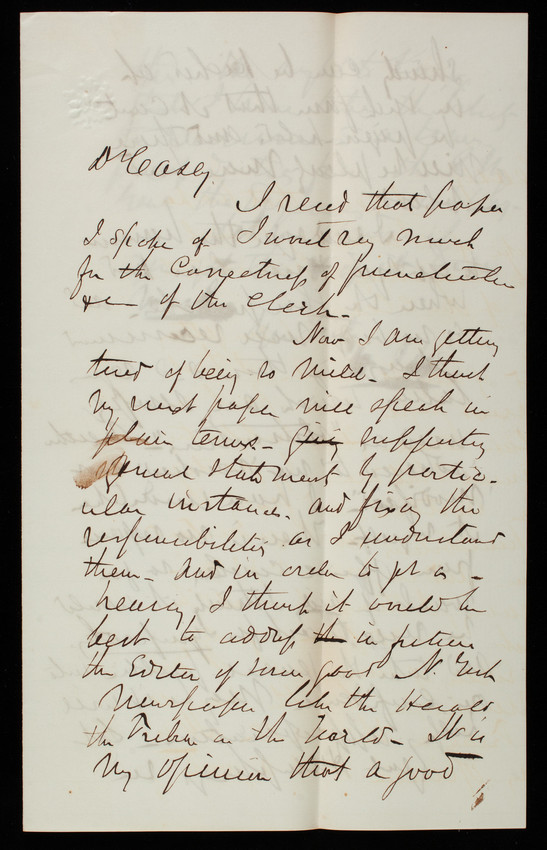 Dr Casey.
I send that paper
I spoke of I won't say much
for the Correctness of punctuation
&c — of the Clerk —
Now I am getting
tired of being so mild — I think
my next paper will speak in
plain terms — giving supporting
general statement by partic-
ular instances. and fixing the
responsibilities as I understand
them — And in order to get a —
hearing I think it would be
best to address th in future
the Editor of some good N. York
Newspaper like the Herald
the Tribune or the World — It is
my opinion that a good